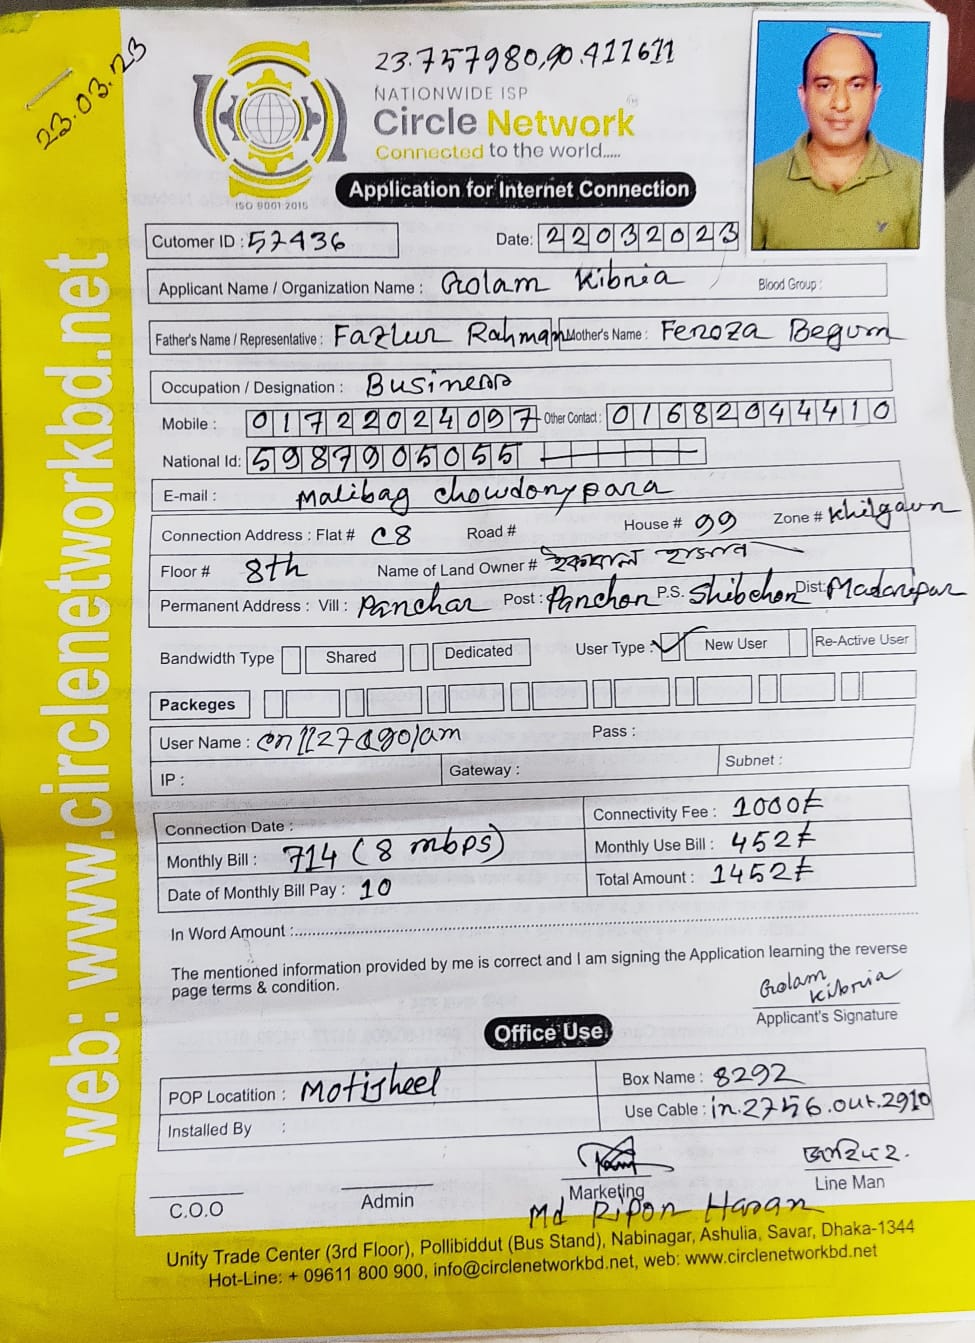 23.03.23
23.757980,90.411611
NATIONWIDE ISP
Circle Network
Connected to the world.....
ISO 9001:2015
Application for Internet Connection
Cutomer ID : 57436
Date: 22032023
Applicant Name / Organization Name : Golam Kibria
Blood Group :
Father's Name / Representative : Fazlur Rahman Mother's Name : Feroza Begum
Occupation / Designation : Business
Mobile : 01722024097 Other Contact : 01682044410
National Id: 5987905055
E-mail : Malibag chowdorypara
Connection Address : Flat # C8 Road # House # 99 Zone # Khilgaon
Floor # 8th Name of Land Owner #
Permanent Address : Vill : Panchar Post : Panchor P.S. Shibchor Dist: Madaripur
Bandwidth Type Shared Dedicated User Type : New User Re-Active User
Packeges
User Name : cn1127@golam Pass :
IP : Gateway : Subnet :
Connection Date :
Connectivity Fee : 1000৳
Monthly Bill : 714 (8 mbps)
Monthly Use Bill : 452৳
Date of Monthly Bill Pay : 10
Total Amount : 1452৳
In Word Amount :
The mentioned information provided by me is correct and I am signing the Application learning the reverse
page terms & condition.
Golam
Kibria
Applicant's Signature
Office Use
POP Locatition : Motijheel
Box Name : 8292
Installed By :
Use Cable : in.2756.out.2910
C.O.O
Admin
Marketing
Line Man
Md Ripon Hasan
Unity Trade Center (3rd Floor), Pollibiddut (Bus Stand), Nabinagar, Ashulia, Savar, Dhaka-1344
Hot-Line: + 09611 800 900, info@circlenetworkbd.net, web: www.circlenetworkbd.net
web: www.circlenetworkbd.net